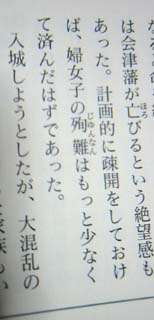 は会津藩が亡びるという絶望感も
あった。計画的に疎開をしておけ
ば、婦女子の殉難はもっと少なく
て済んだはずであった。
入城しようとしたが、大混乱の